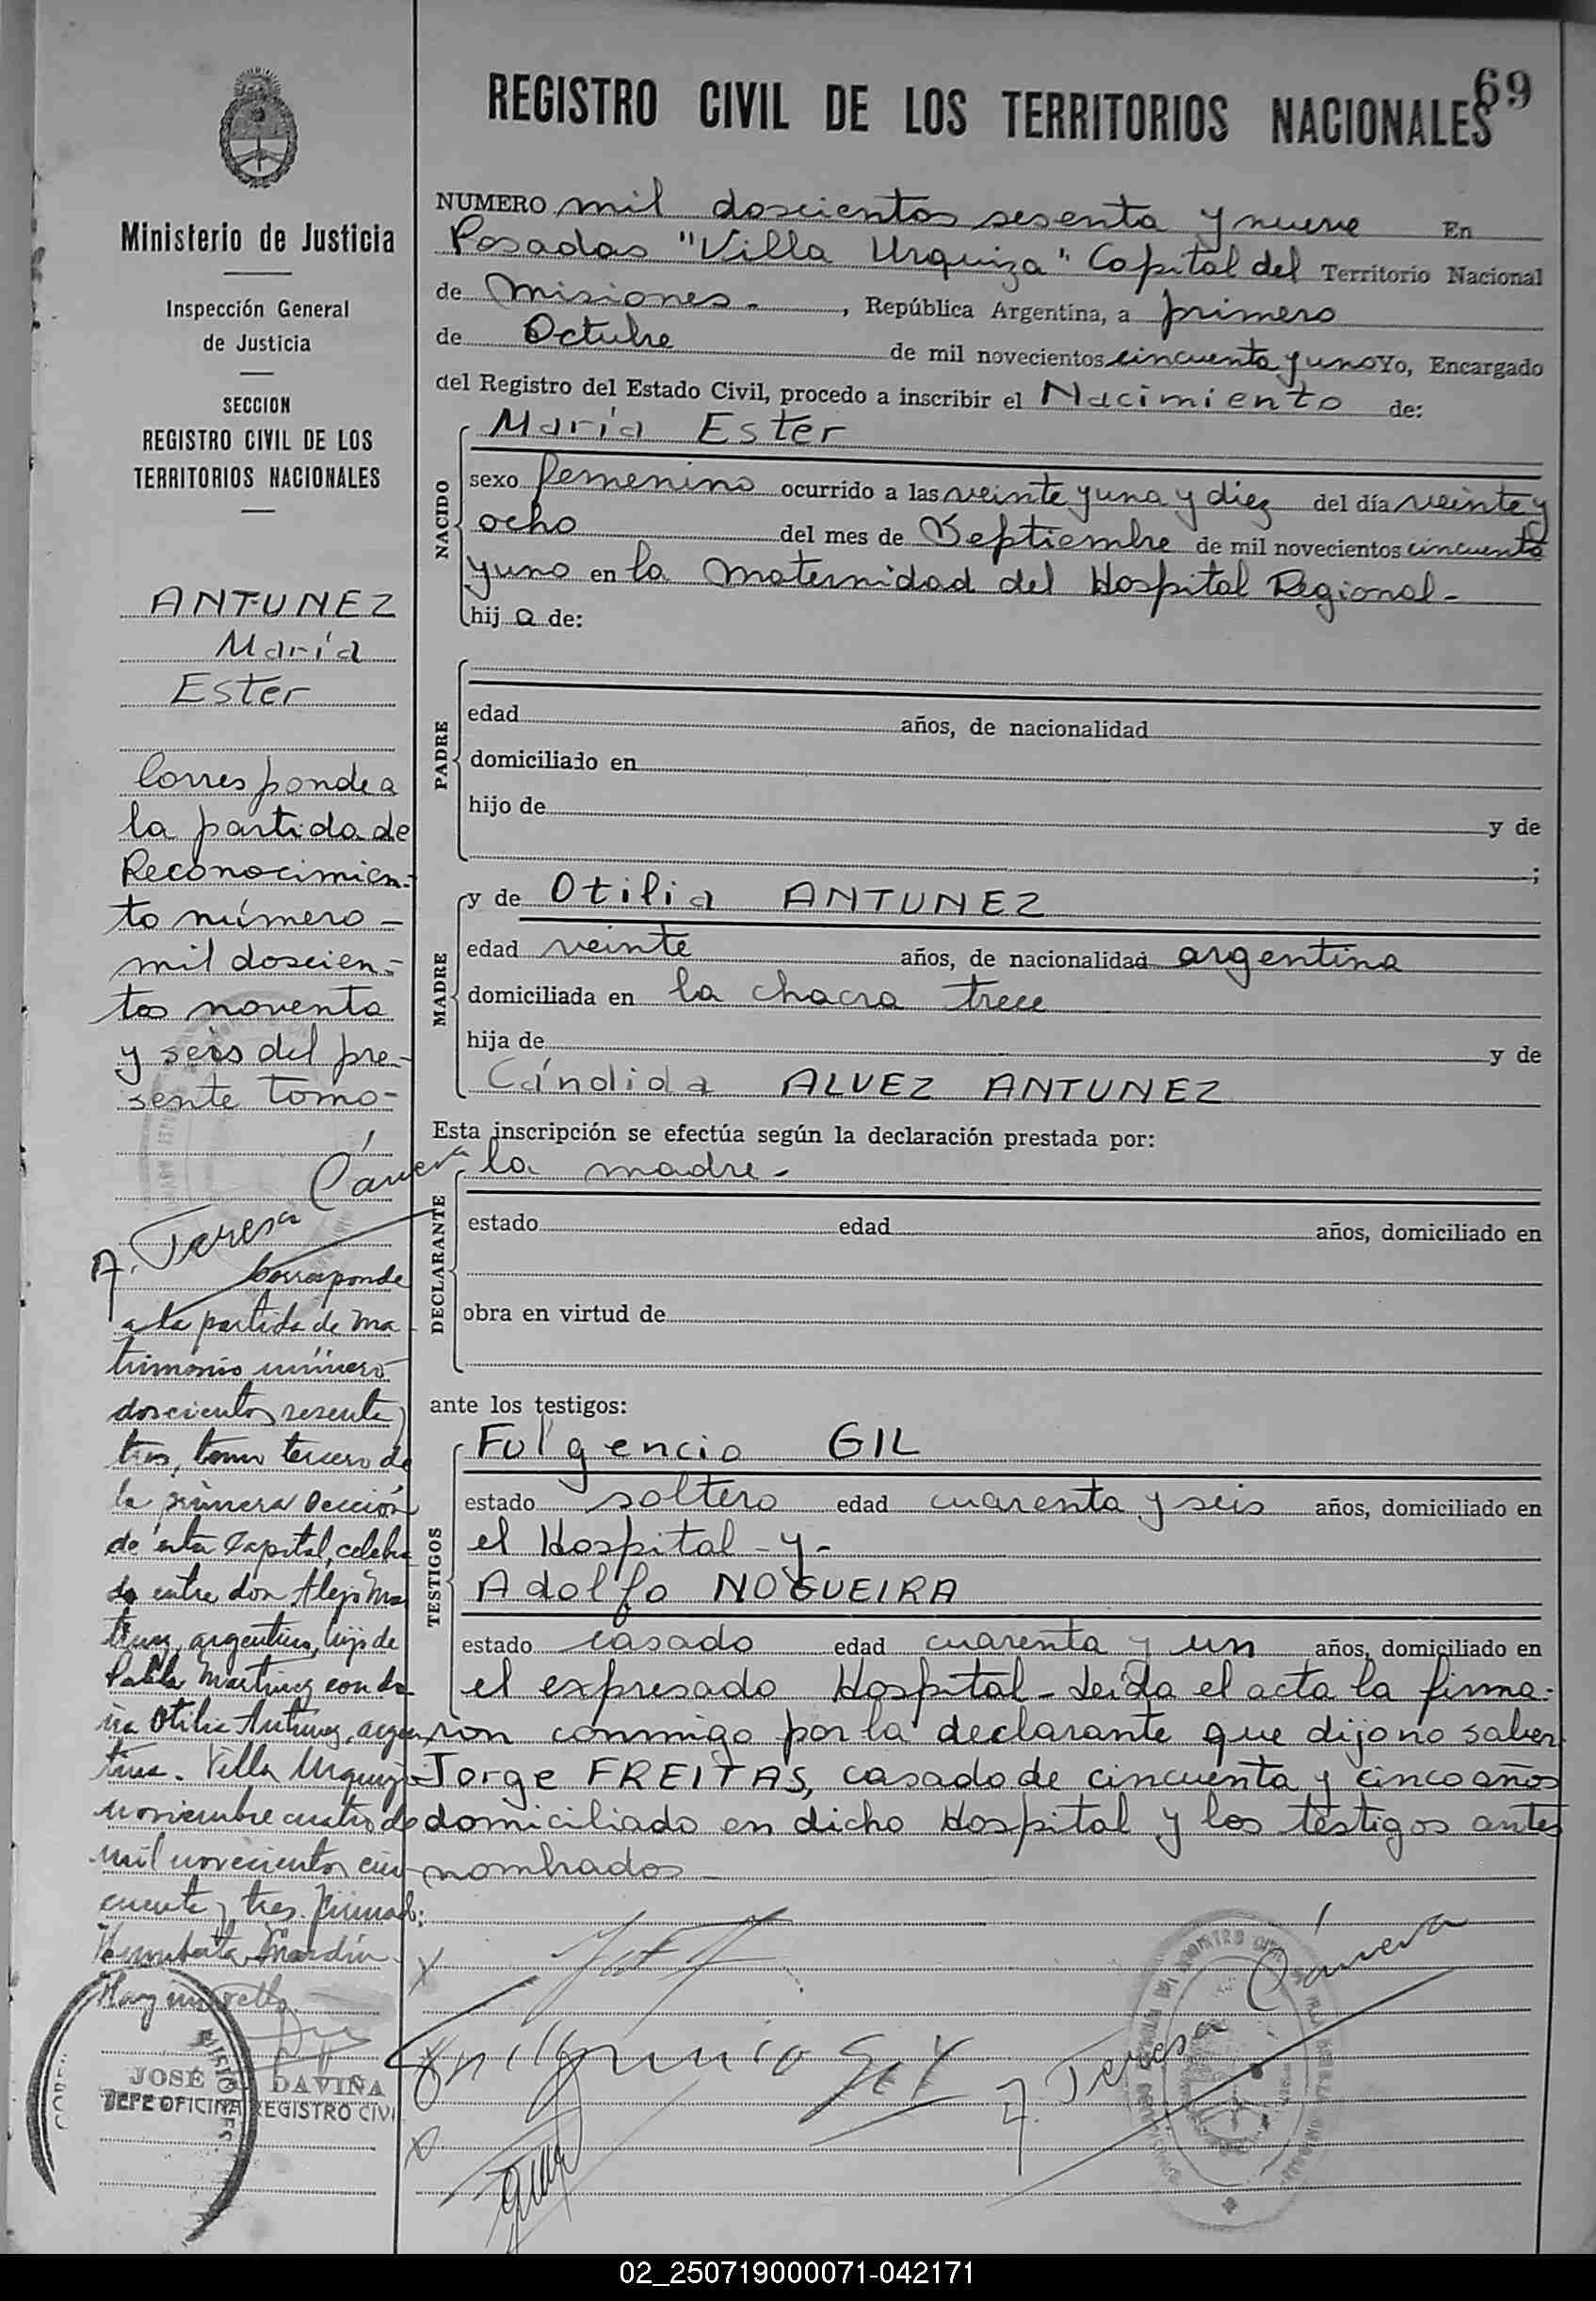 69
REGISTRO CIVIL DE LOS TERRITORIOS NACIONALES
Ministerio de Justicia
Inspección General
de Justicia
SECCION
REGISTRO CIVIL DE LOS
TERRITORIOS NACIONALES
ANTUNEZ
María
Ester
Corresponde a
la partida de
Reconocimien-
to número -
mil doscien-
tos noventa
y seis del pre-
sente tomo-
A. Teresa Cánera
Corresponde
a la partida de ma
trimonio número
doscientos sesenta y
tres, tomo tercero de
la primera Sección
de esta Capital, celebra
do entre don Alejo Mar
tinez, argentino, hijo de
Pabla Martinez con do
ña Otilia Antunez, argen
tina. Villa Urquiza
noviembre cuatro de
mil novecientos cin
cuenta y tres. Firmado:
JOSÉ DAVIÑA
JEFE OFICINA REGISTRO CIVIL
NUMERO mil doscientos sesenta y nueve En
Posadas "Villa Urquiza" Capital del Territorio Nacional
de Misiones.-, República Argentina, a primero
de Octubre de mil novecientos cincuenta y uno Yo, Encargado
del Registro del Estado Civil, procedo a inscribir el Nacimiento de:
María Ester
NACIDO
sexo femenino ocurrido a las veinte y una y diez del día veinte y
ocho del mes de Septiembre de mil novecientos cincuenta
y uno en la Maternidad del Hospital Regional-
hij a de:
PADRE
edad años, de nacionalidad
domiciliado en
hijo de y de
;
MADRE
y de Otilia ANTUNEZ
edad veinte años, de nacionalidad argentina
domiciliada en la chacra trece
hija de y de
Cándida ALVEZ ANTUNEZ
Esta inscripción se efectúa según la declaración prestada por:
DECLARANTE
la madre-
estado edad años, domiciliado en
obra en virtud de
ante los testigos:
TESTIGOS
Fulgencio GIL
estado soltero edad cuarenta y seis años, domiciliado en
el Hospital - y -
Adolfo NOGUEIRA
estado casado edad cuarenta y un años, domiciliado en
el expresado Hospital - Leída el acta la firma-
ron conmigo por la declarante que dijo no saber
Jorge FREITAS, casado de cincuenta y cinco años
domiciliado en dicho Hospital y los testigos antes
nombrados
Fulgencio Gil
A. Teresa Cánera
02_250719000071-042171